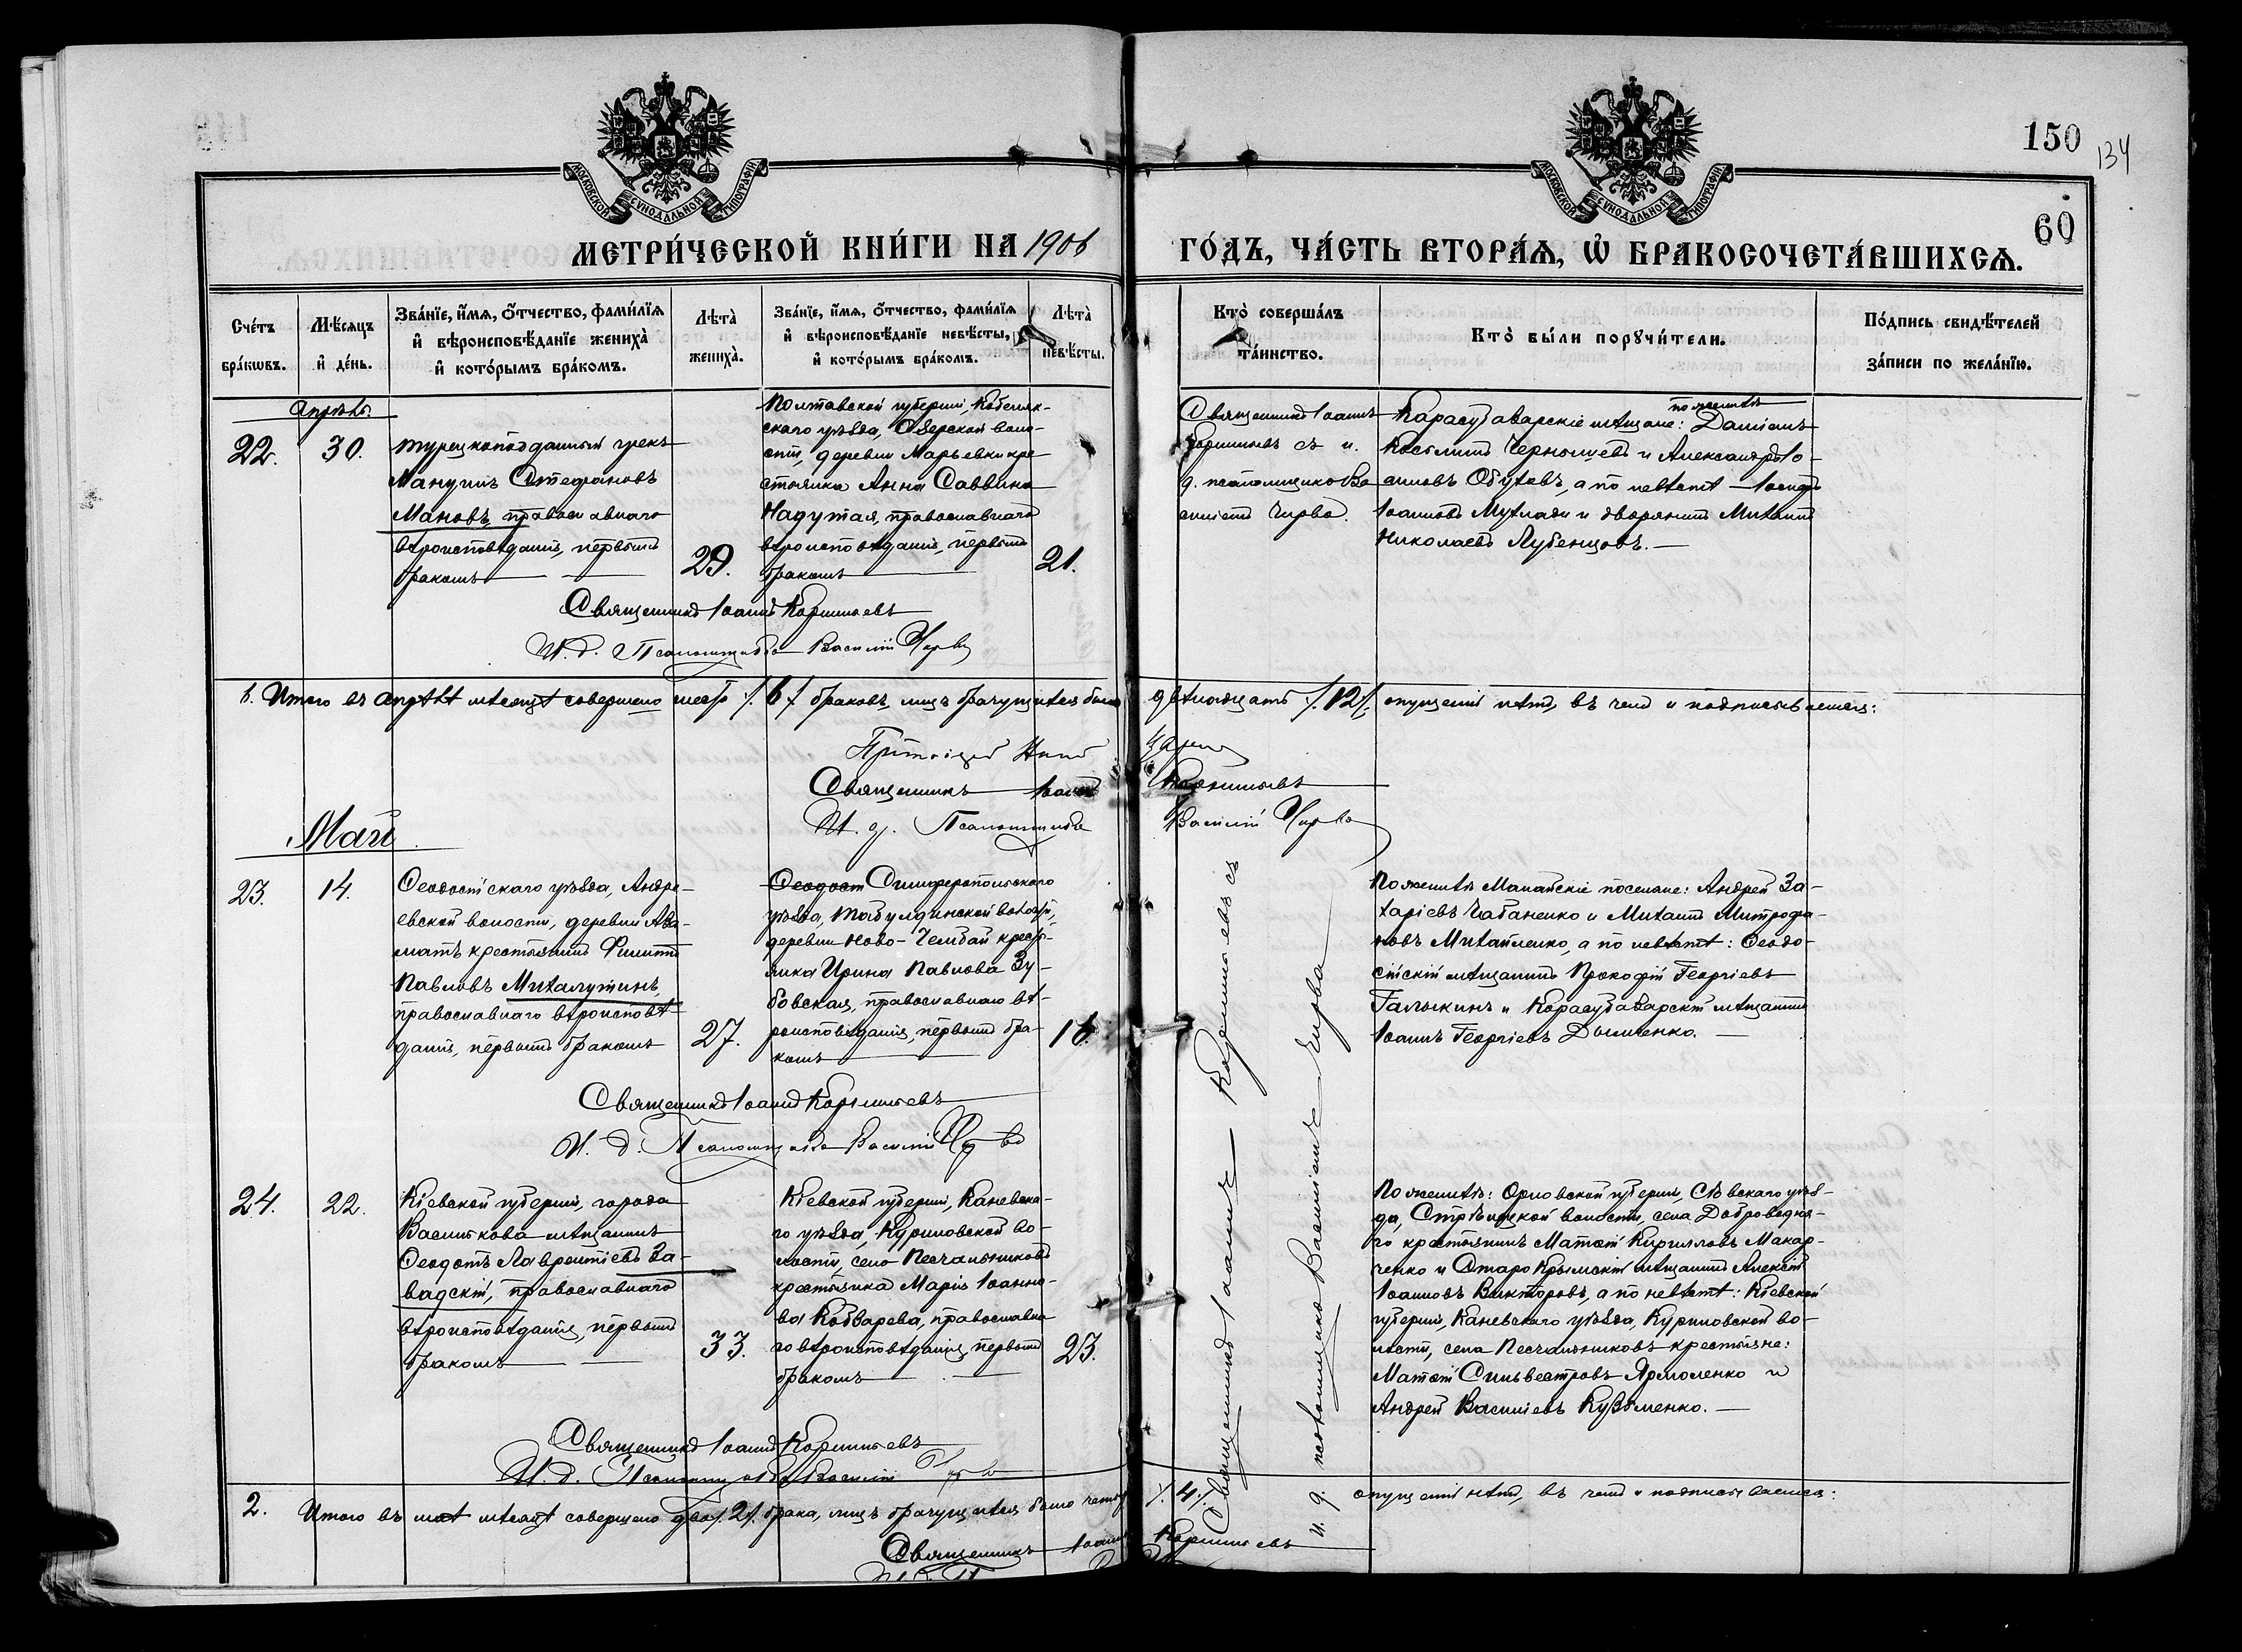 150
134
60
МОСКОВСКОЙ СѴНОДАЛЬНОЙ ТИПОГРАФІИ
МОСКОВСКОЙ СѴНОДАЛЬНОЙ ТИПОГРАФІИ
МЕТРИ́ЧЕСКОЙ КНИ́ГИ НА 1906
ГО́ДЪ, ЧА́СТЬ ВТОРА́Ѧ, Ѽ БРАКОСОЧЕТА́ВШИХСѦ.
Сче́тъ бра́кѡвъ.
Мѣ́сяцъ и҆ де́нь.
Зва́нїе, и҆́мя, ѻ҆́тчество, фами́лїя
и҆ вѣроисповѣ́данїе жениха̀
и҆ кото́рымъ бра́комъ.
Лѣта̀ жениха̀.
Зва́нїе, и҆́мя, ѻ҆́тчество, фами́лїя
и҆ вѣроисповѣ́данїе невѣ́сты,
и҆ кото́рымъ бра́комъ.
Лѣта̀ невѣ́сты.
Кто̀ соверша́лъ
та́инство.
Кто̀ бы́ли порꙋчи́тели.
По́дпись свидѣ́телей
за́писи по жела́нїю.
Апрѣль.
22.
30.
турецкоподданный грекъ
Мануилъ Стефановъ
Мановъ, православнаго
вѣроисповѣданія, первымъ
бракомъ
29.
Полтавской губерніи, Кобеляк-
скаго уѣзда, Озерской воло-
сти, деревни Марьевки кре
стьянка Анна Саввина
Надутая, православнаго
вѣроисповѣданія, первымъ
бракомъ
21.
Священникъ Іоаннъ
Корнильевъ съ и.
д. псаломщика Ва
силіемъ Чирва.
по женихѣ
Карасубазарскіе мѣщане: Даміанъ
Косминъ Чернышевъ и Александръ Іо-
анновъ Обуховъ, а по невѣстѣ – Іосифъ
Іоанновъ Мухлади и дворянинъ Михаилъ
Николаевъ Лубенцовъ.
Священникъ Іоаннъ Корнильевъ
И. д. Псаломщика Василій Чирва
6. Итого въ Апрѣлѣ мѣсяцѣ совершено шесть /.6/. браковъ, лицъ брачущихся было двѣнадцать /.12/. опущеній нѣтъ, въ чемъ и подписываемся:
Протоіерей
Священникъ Іоаннъ Корнильевъ
И. д. Псаломщика Василій Чирва
Май
23.
14.
Ѳеодосійскаго уѣзда, Андре-
евской волости, деревни Аза-
матъ крестьянинъ Филиппъ
Павловъ Михалутинъ,
православнаго вѣроисповѣ
данія, первымъ бракомъ
27.
Ѳеодост Симферопольскаго
уѣзда, Табулдинской волости,
деревни Ново-Чембай крестья-
янка Ирина Павлова Зу-
бовская, православнаго вѣ-
роисповѣданія, первымъ бра-
комъ
16.
Священникъ Іоаннъ Корнильевъ съ
и. д. псаломщика Василіемъ Чирва
По женихѣ Мамайскіе поселяне: Андрей За-
харіевъ Чабаненко и Михаилъ Митрофа-
новъ Михайленко, а по невѣстѣ: Ѳеодо-
сійскій мѣщанинъ Прокофій Георгіевъ
Галыкинъ и Карасубазарскій мѣщанинъ
Іоаннъ Георгіевъ Дымченко.
Священникъ Іоаннъ Корнильевъ
И. д. Псаломщика Василій Чирва
24.
22.
Кіевской губерніи, города
Василькова мѣщанинъ
Ѳеодотъ Лаврентіевъ За-
вадскій, православнаго
вѣроисповѣданія, первымъ
бракомъ
33.
Кіевской губерніи, Каневска-
го уѣзда, Куриловской во-
лости, села Песчальниковъ
крестьянка Марія Іоанно-
ва Кобзарева, православна-
го вѣроисповѣданія, первымъ
бракомъ
23.
По женихѣ: Орловской губерніи, Сѣвскаго уѣз-
да, Стрѣлецкой волости, села Доброводска-
го крестьянинъ Матѳей Кирилловъ Макар-
ченко и Старо Крымскій мѣщанинъ Алексѣй
Іоанновъ Викторовъ, а по невѣстѣ: Кіевской
губерніи, Каневскаго уѣзда, Куриловской во-
лости, села Песчальниковъ крестьяне:
Матѳей Сильвестровъ Ярмоленко и
Андрей Василіевъ Кузьменко.
Священникъ Іоаннъ Корнильевъ
И. д. Псаломщика Василій Чирва
2. Итого въ маѣ мѣсяцѣ совершено два /.2/. брака, лицъ брачущихся было четыре /.4/. опущеній нѣтъ, въ чемъ и подписываемся:
Священникъ Іоаннъ Корнильевъ